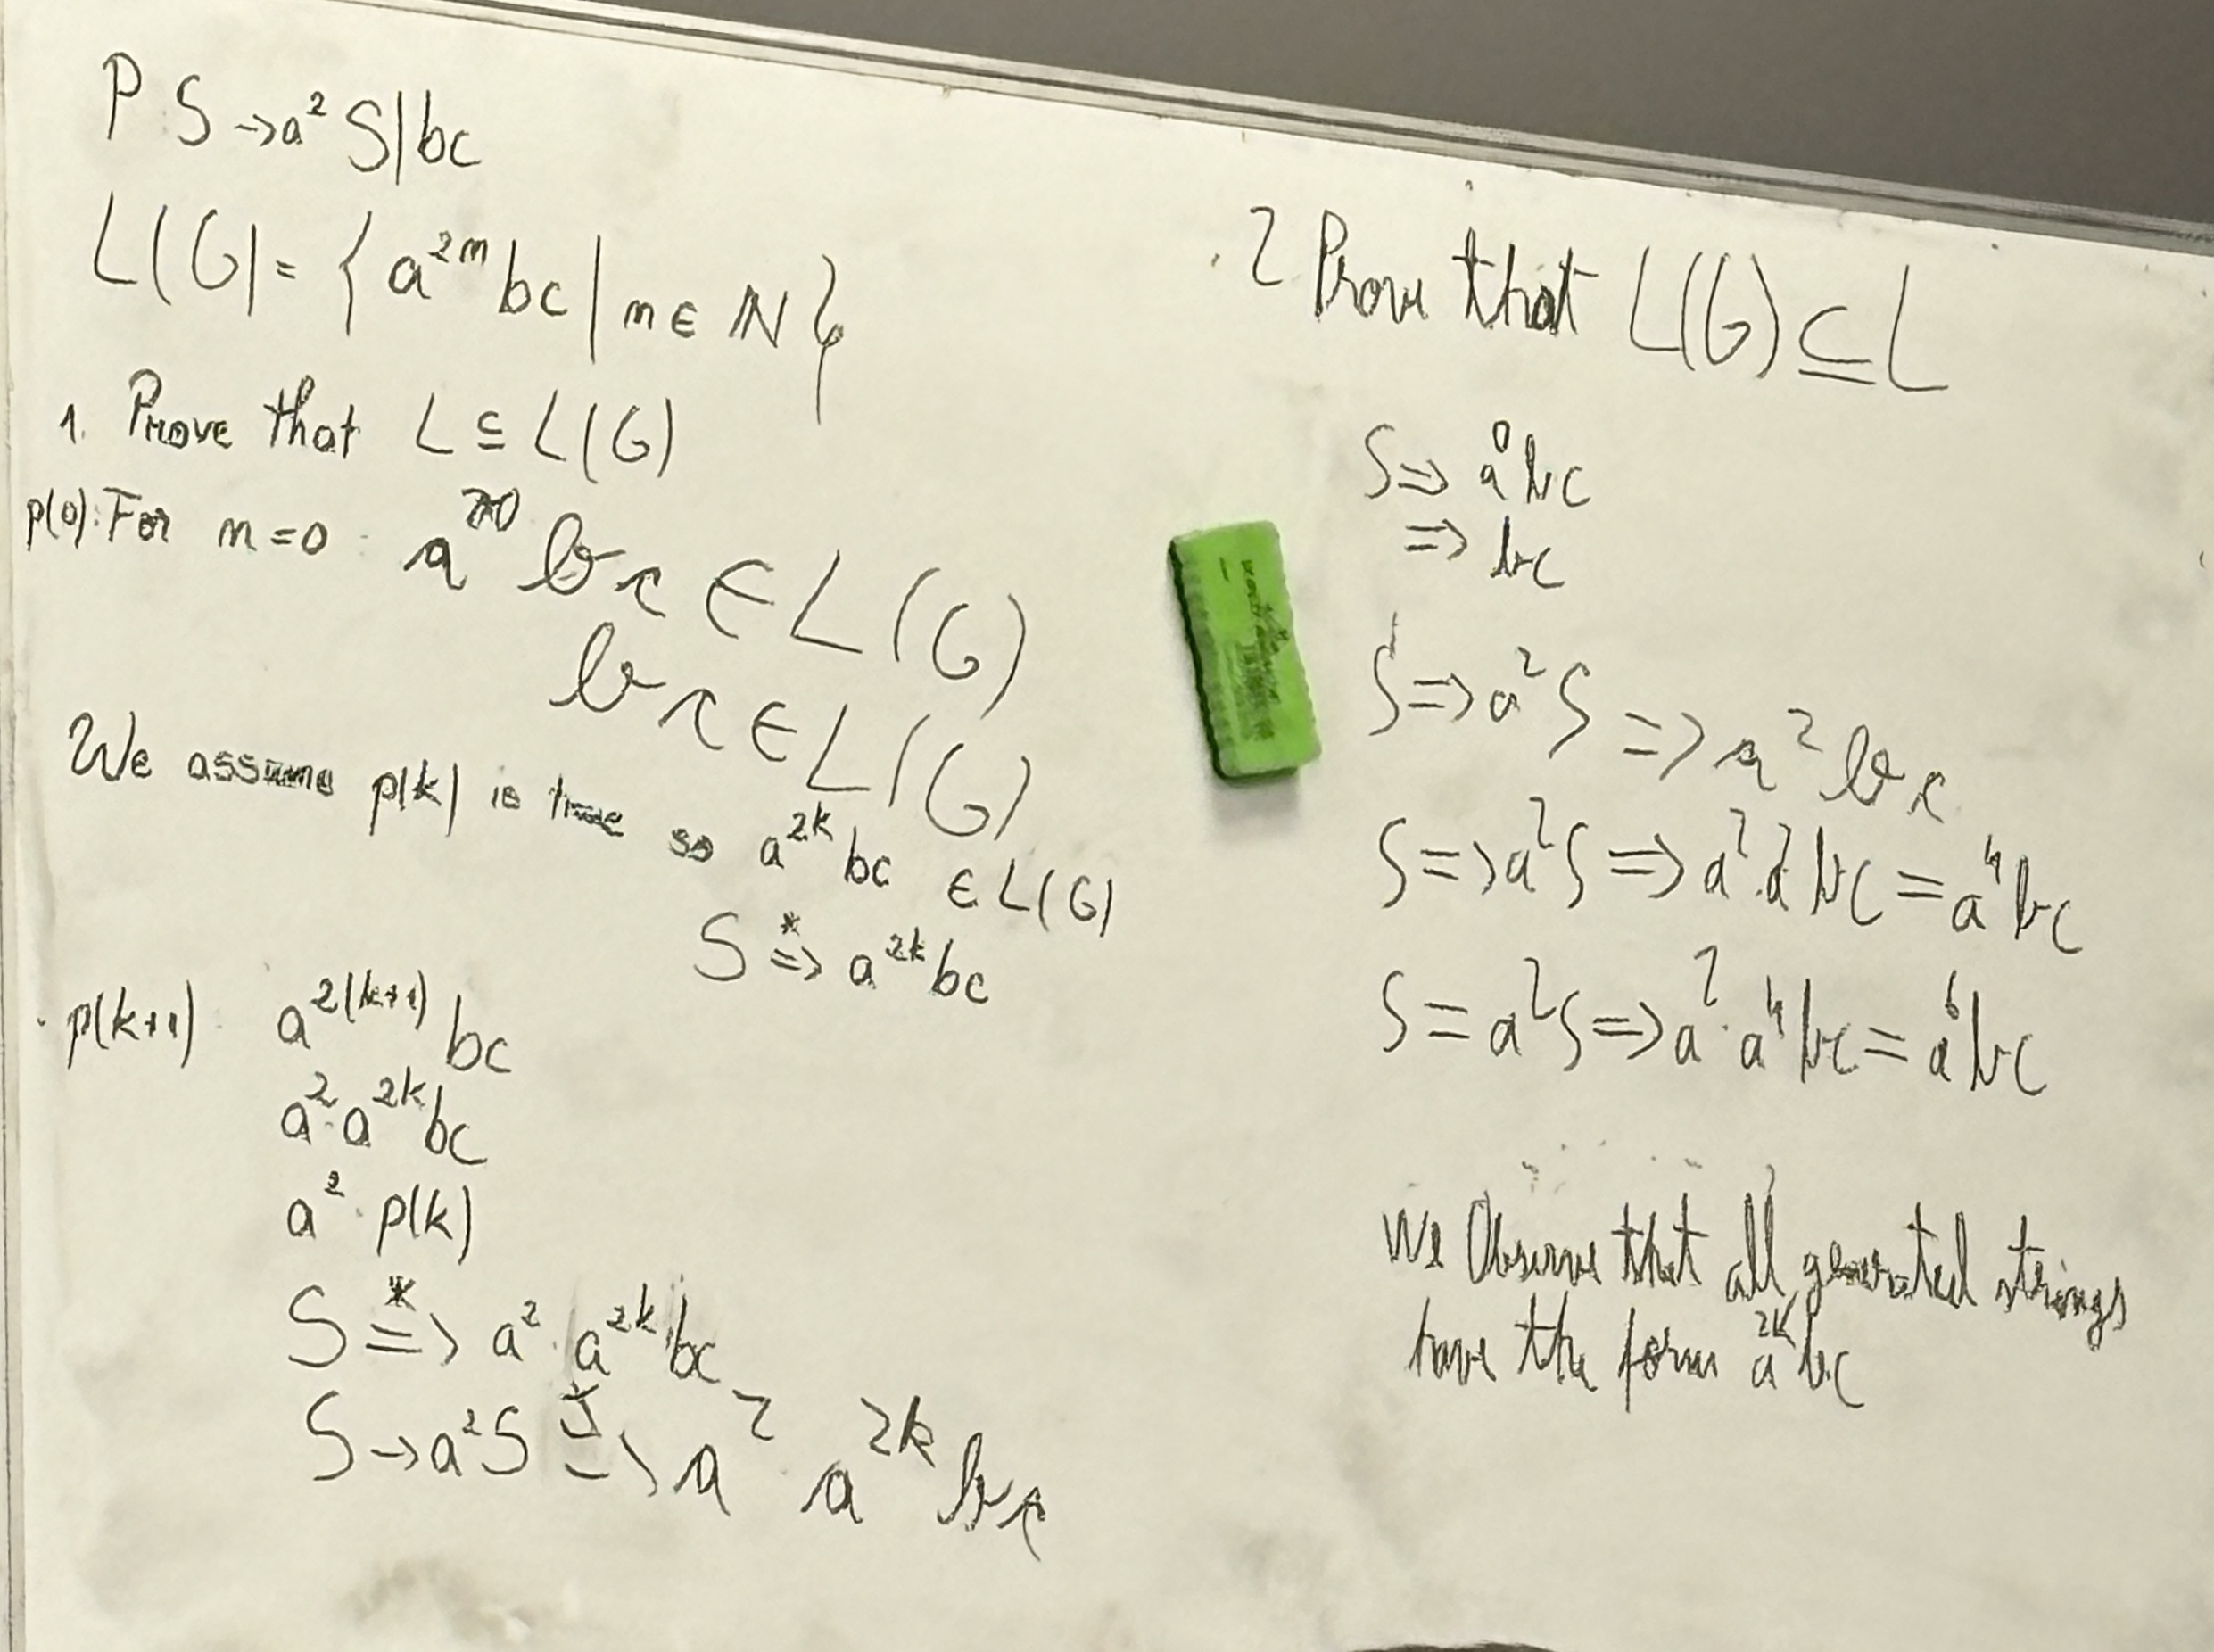 P S → a² S | bc
L(G) = { a²ⁿ bc | n ∈ N }
1. Prove that L ⊆ L(G)
p(0): For n = 0 : a²·⁰ bc ∈ L(G)
bc ∈ L(G)
We assume p(k) is true so a²ᵏ bc ∈ L(G)
S *⇒ a²ᵏ bc
p(k+1) a²⁽ᵏ⁺¹⁾ bc
a²·a²ᵏ bc
a²·p(k)
S *⇒ a² · a²ᵏ bc
S → a²S *⇒ a² a²ᵏ bc
2 Prove that L(G) ⊆ L
S ⇒ a⁰bc
⇒ bc
S ⇒ a²S ⇒ a² bc
S ⇒ a²S ⇒ a²·a² bc = a⁴bc
S = a²S ⇒ a²·a⁴bc = a⁶bc
We Observe that all generated strings
have the form a²ᵏbc